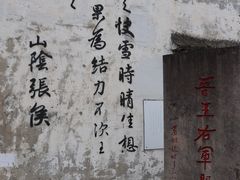 快雪時晴佳想
果為結力不次王
山陰張侯
晉王右軍